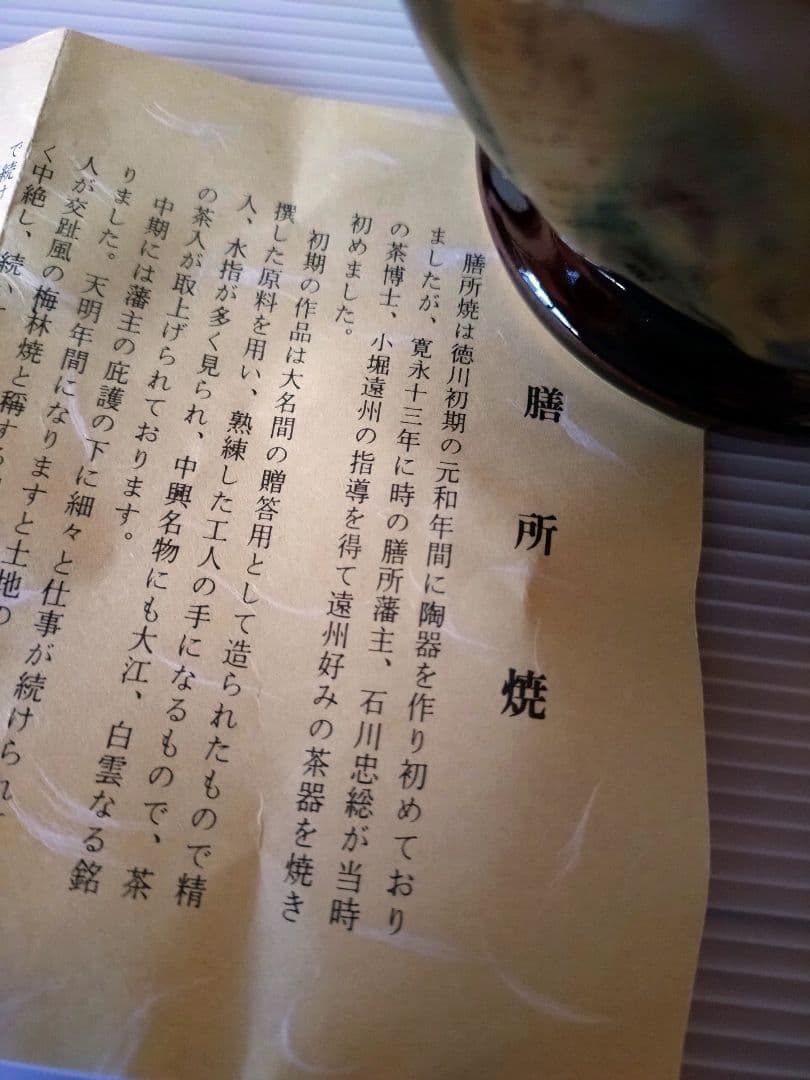 膳所焼
膳所焼は徳川初期の元和年間に陶器を作り初めており
ましたが、寛永十三年に時の膳所藩主、石川忠総が当時
の茶博士、小堀遠州の指導を得て遠州好みの茶器を焼き
初めました。
初期の作品は大名間の贈答用として造られたもので精
撰した原料を用い、熟練した工人の手になるもので、茶
人、水指が多く見られ、中興名物にも大江、白雲なる銘
の茶入が取上げられております。
中期には藩主の庇護の下に細々と仕事が続けられ
りました。天明年間になりますと土地の
人が交趾風の梅林焼と称する
く中絶し、続い
で続け